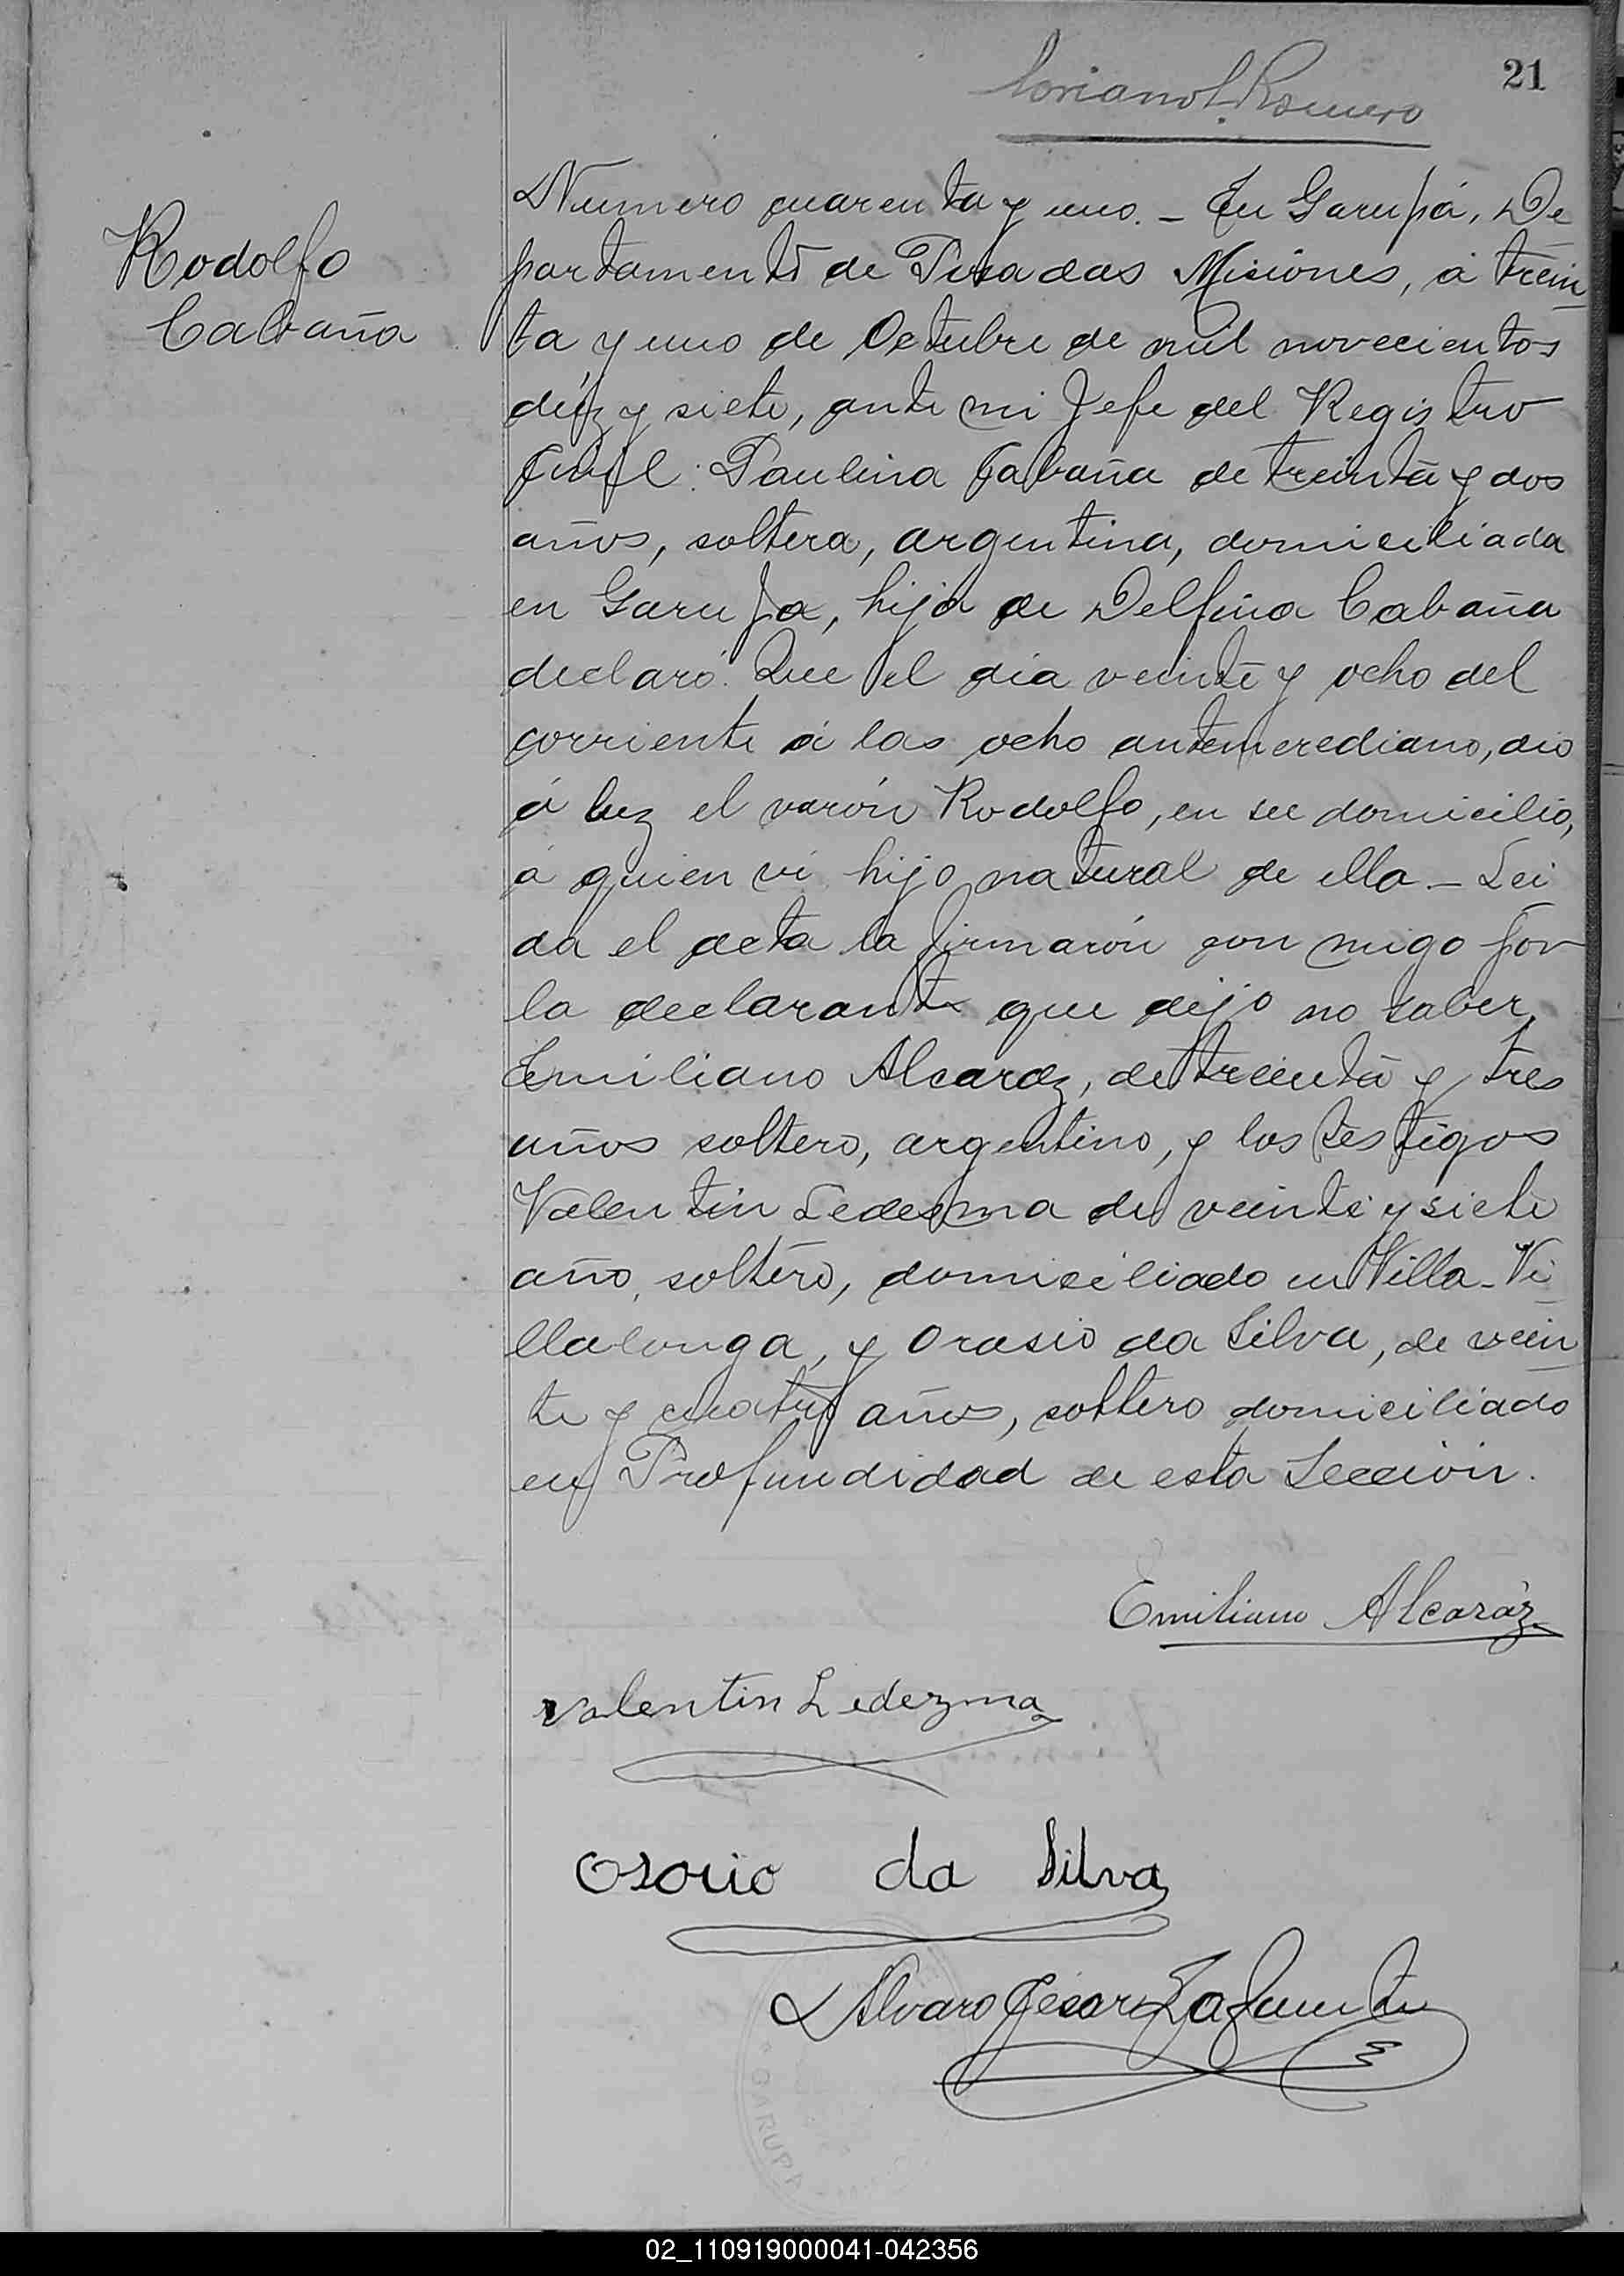 21
Loriano L. Romero
Rodolfo
Cabaña
Numero cuarenta y uno. - En Garupá, De
partamento de Posadas Misiones, á trein
ta y uno de Octubre de mil novecientos
diéz y siete, ante mi Jefe del Registro
Civil: Paulina Cabaña de treinta y dos
años, soltera, argentina, domiciliada
en Garupa, hija de Delfina Cabaña
declaró: Que el dia veinte y ocho del
corriente á las ocho antemerediano, dio
á luz el varón Rodolfo, en su domicilio,
á quien vi hijo natural de ella. - Lei
da el acta la firmarón con migo por
la declarante que dijo no saber,
Emiliano Alcaraz, de treinta y tres
años soltero, argentino, y los testigos
Valentin Ledesma de veinte y siete
año, soltero, domiciliado en Villa - Vi
llalonga, y Orasio da Silva, de vein
te y cuatro años, soltero domiciliado
en Profundidad de esta Sección.
Emiliano Alcaráz
Valentin Ledezma
Osorio da Silva
Alvaro Cesar Lafuente
GARUPA
02_110919000041-042356